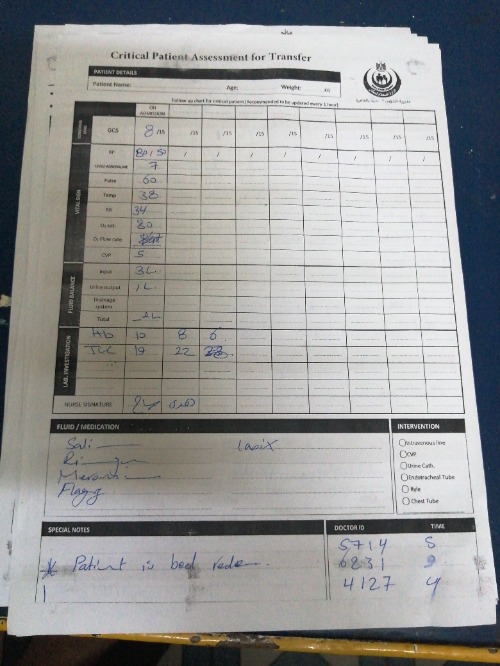 Critical Patient Assessment for Transfer
PATIENT DETAILS
Patient Name: Age: Weight: KG
Follow up chart for critical patient (Recommended to be updated every 1 hour)
ON ADMISSION
GCS 8 /15 /15 /15 /15 /15 /15 /15 /15
VITAL SIGN
BP 80/50 / / / / / / /
7
Pulse 60
Temp 38
RR 34
O2 sat. 80
O2 Flow rate
CVP 5
FLUID BALANCE
Input 3L
Urine output 1L
Drainage system
Total 2L
LAB. INVESTIGATION
Hb 10 8 6
TLC 19 22
NURSE SIGNATURE
FLUID / MEDICATION
INTERVENTION
Soli Lasix
Intravenous line
CVP
Urine Cath.
Endotracheal Tube
Ryle
Chest Tube
Flagy
SPECIAL NOTES
DOCTOR ID TIME
5714 5
* Patient is bed
6831 9
4127 4